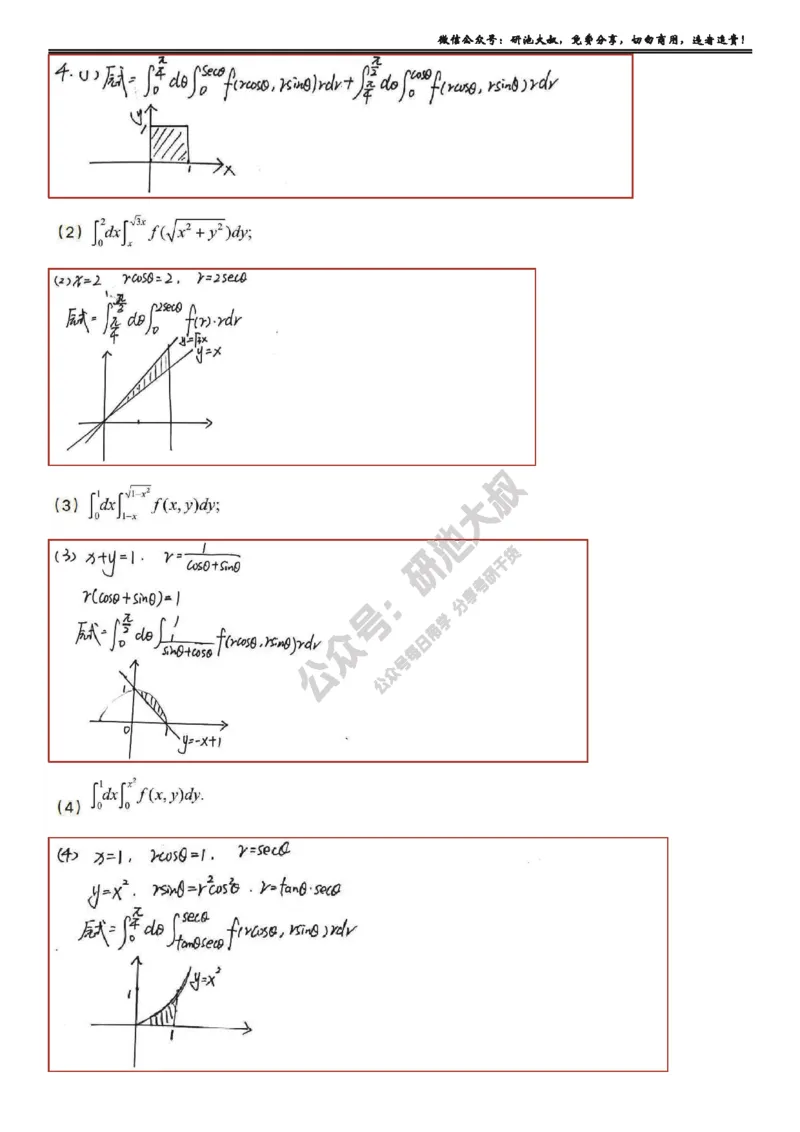 微信公众号：研池大叔，免费分享，切勿商用，违者追责！
4.(1) 原式=∫_0^{π/4} dθ∫_0^{secθ} f(rcosθ, rsinθ)rdr+∫_{π/4}^{π/2} dθ∫_0^{cosθ} f(rcosθ, rsinθ)rdr
y
1
1
x
(2) ∫_0^2 dx∫_x^{√3x} f(√(x²+y²))dy;
(2) x=2 rcosθ=2, r=2secθ
原式=∫_{π/4}^{π/3} dθ∫_0^{2secθ} f(r)·rdr
y=√3x
y=x
(3) ∫_0^1 dx∫_{1-x}^{√(1-x²)} f(x,y)dy;
(3) x+y=1. r=1/(cosθ+sinθ)
r(cosθ+sinθ)=1
原式=∫_0^{π/2} dθ∫_{1/(sinθ+cosθ)}^1 f(rcosθ,rsinθ)rdr
1
0
1
y=-x+1
公众号：研池大叔
公众号每日带学 分享考研干货
(4) ∫_0^1 dx∫_0^{x²} f(x,y)dy.
(4) x=1, rcosθ=1. r=secθ
y=x². rsinθ=r²cos²θ. r=tanθ·secθ
原式=∫_0^{π/4} dθ∫_{tanθsecθ}^{secθ} f(rcosθ, rsinθ)rdr
1
y=x²
1